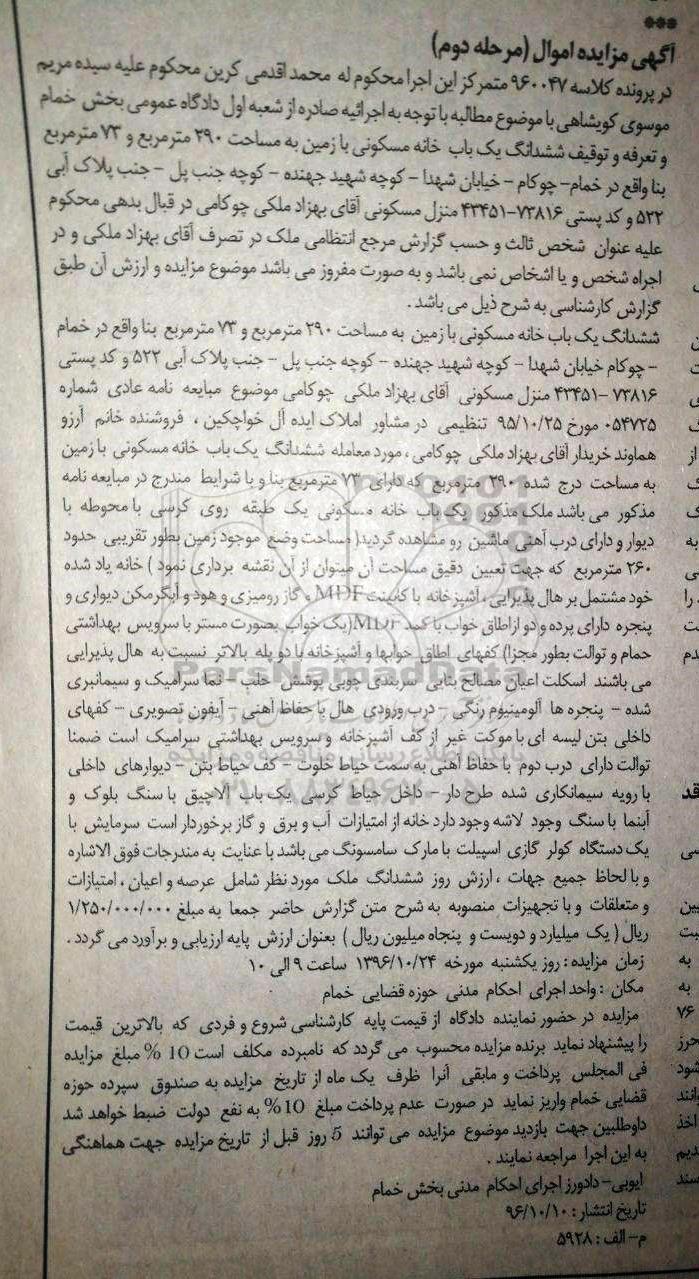 ***
آگهی مزایده اموال (مرحله دوم)
در پرونده کلاسه ۹۶۰۰۴۷ متمرکز این اجرا محکوم له محمد اقدمی کرین محکوم علیه سیده مریم
موسوی کویشاهی با موضوع مطالبه با توجه به اجرائیه صادره از شعبه اول دادگاه عمومی بخش خمام
و تعرفه و توقیف ششدانگ یک باب خانه مسکونی با زمین به مساحت ۲۹۰ مترمربع و ۷۳ مترمربع
بنا واقع در خمام- چوکام - خیابان شهدا - کوچه شهید جهنده - کوچه جنب پل - جنب پلاک آبی
۵۲۲ و کد پستی ۷۳۸۱۶-۴۳۴۵۱ منزل مسکونی آقای بهزاد ملکی چوکامی در قبال بدهی محکوم
علیه عنوان شخص ثالث و حسب گزارش مرجع انتظامی ملک در تصرف آقای بهزاد ملکی و در
اجراه شخص و یا اشخاص نمی باشد و به صورت مفروز می باشد موضوع مزایده و ارزش آن طبق
گزارش کارشناسی به شرح ذیل می باشد .
ششدانگ یک باب خانه مسکونی با زمین به مساحت ۲۹۰ مترمربع و ۷۳ مترمربع بنا واقع در خمام
- چوکام خیابان شهدا - کوچه شهید جهنده - کوچه جنب پل - جنب پلاک آبی ۵۲۲ و کد پستی
۷۳۸۱۶ -۴۳۴۵۱ منزل مسکونی آقای بهزاد ملکی چوکامی موضوع مبایعه نامه عادی شماره
۰۵۴۷۲۵ مورخ ۹۵/۱۰/۲۵ تنظیمی در مشاور املاک ایده آل خواچکین ، فروشنده خانم آرزو
هماوند خریدار آقای بهزاد ملکی چوکامی ، مورد معامله ششدانگ یک باب خانه مسکونی با زمین
به مساحت درج شده ۲۹۰ مترمربع که دارای ۷۳ مترمربع بنا و با شرایط مندرج در مبایعه نامه
مذکور می باشد ملک مذکور یک باب خانه مسکونی یک طبقه روی کرسی با محوطه با
دیوار و دارای درب آهنی ماشین رو مشاهده گردید( مساحت وضع موجود زمین بطور تقریبی حدود
۲۶۰ مترمربع که جهت تعیین دقیق مساحت آن میتوان از آن نقشه برداری نمود ) خانه یاد شده
خود مشتمل بر هال پذیرایی ، آشپزخانه با کابینت MDF ، گاز رومیزی و هود و آبگرمکن دیواری و
پنجره دارای پرده و دو ازاطاق خواب با کمد MDF(یک خواب بصورت مستر با سرویس بهداشتی
حمام و توالت بطور مجزا) کفهای اطاق خوابها و آشپزخانه با دو پله بالاتر نسبت به هال پذیرایی
می باشند اسکلت اعیان مصالح بنایی سربندی چوبی پوشش حلب - نما سرامیک و سیمانبری
شده - پنجره ها آلومینیوم رنگی - درب ورودی هال با حفاظ آهنی - آیفون تصویری - کفهای
داخلی بتن لیسه ای با موکت غیر از کف آشپزخانه و سرویس بهداشتی سرامیک است ضمنا
توالت دارای درب دوم با حفاظ آهنی به سمت حیاط خلوت - کف حیاط بتن - دیوارهای داخلی
با رویه سیمانکاری شده طرح دار - داخل حیاط کرسی یک باب آلاچیق با سنگ بلوک و
آبنما با سنگ وجود لاشه وجود دارد خانه از امتیازات آب و برق و گاز برخوردار است سرمایش با
یک دستگاه کولر گازی اسپیلت با مارک سامسونگ می باشد با عنایت به مندرجات فوق الاشاره
و با لحاظ جمیع جهات ، ارزش روز ششدانگ ملک مورد نظر شامل عرصه و اعیان ، امتیازات
و متعلقات و با تجهیزات منصوبه به شرح متن گزارش حاضر جمعا به مبلغ ۱/۲۵۰/۰۰۰/۰۰۰
ریال ( یک میلیارد و دویست و پنجاه میلیون ریال ) بعنوان ارزش پایه ارزیابی و برآورد می گردد .
زمان مزایده : روز یکشنبه مورخه ۱۳۹۶/۱۰/۲۴ ساعت ۹ الی ۱۰
مکان : واحد اجرای احکام مدنی حوزه قضایی خمام
مزایده در حضور نماینده دادگاه از قیمت پایه کارشناسی شروع و فردی که بالاترین قیمت
را پیشنهاد نماید برنده مزایده محسوب می گردد که نامبرده مکلف است 10 % مبلغ مزایده
فی المجلس پرداخت و مابقی آنرا ظرف یک ماه از تاریخ مزایده به صندوق سپرده حوزه
قضایی خمام واریز نماید در صورت عدم پرداخت مبلغ 10% به نفع دولت ضبط خواهد شد
داوطلبین جهت بازدید موضوع مزایده می توانند 5 روز قبل از تاریخ مزایده جهت هماهنگی
به این اجرا مراجعه نمایند .
ایوبی- دادورز اجرای احکام مدنی بخش خمام
تاریخ انتشار : ۹۶/۱۰/۱۰
م- الف : ۵۹۲۸
ParsNamadData